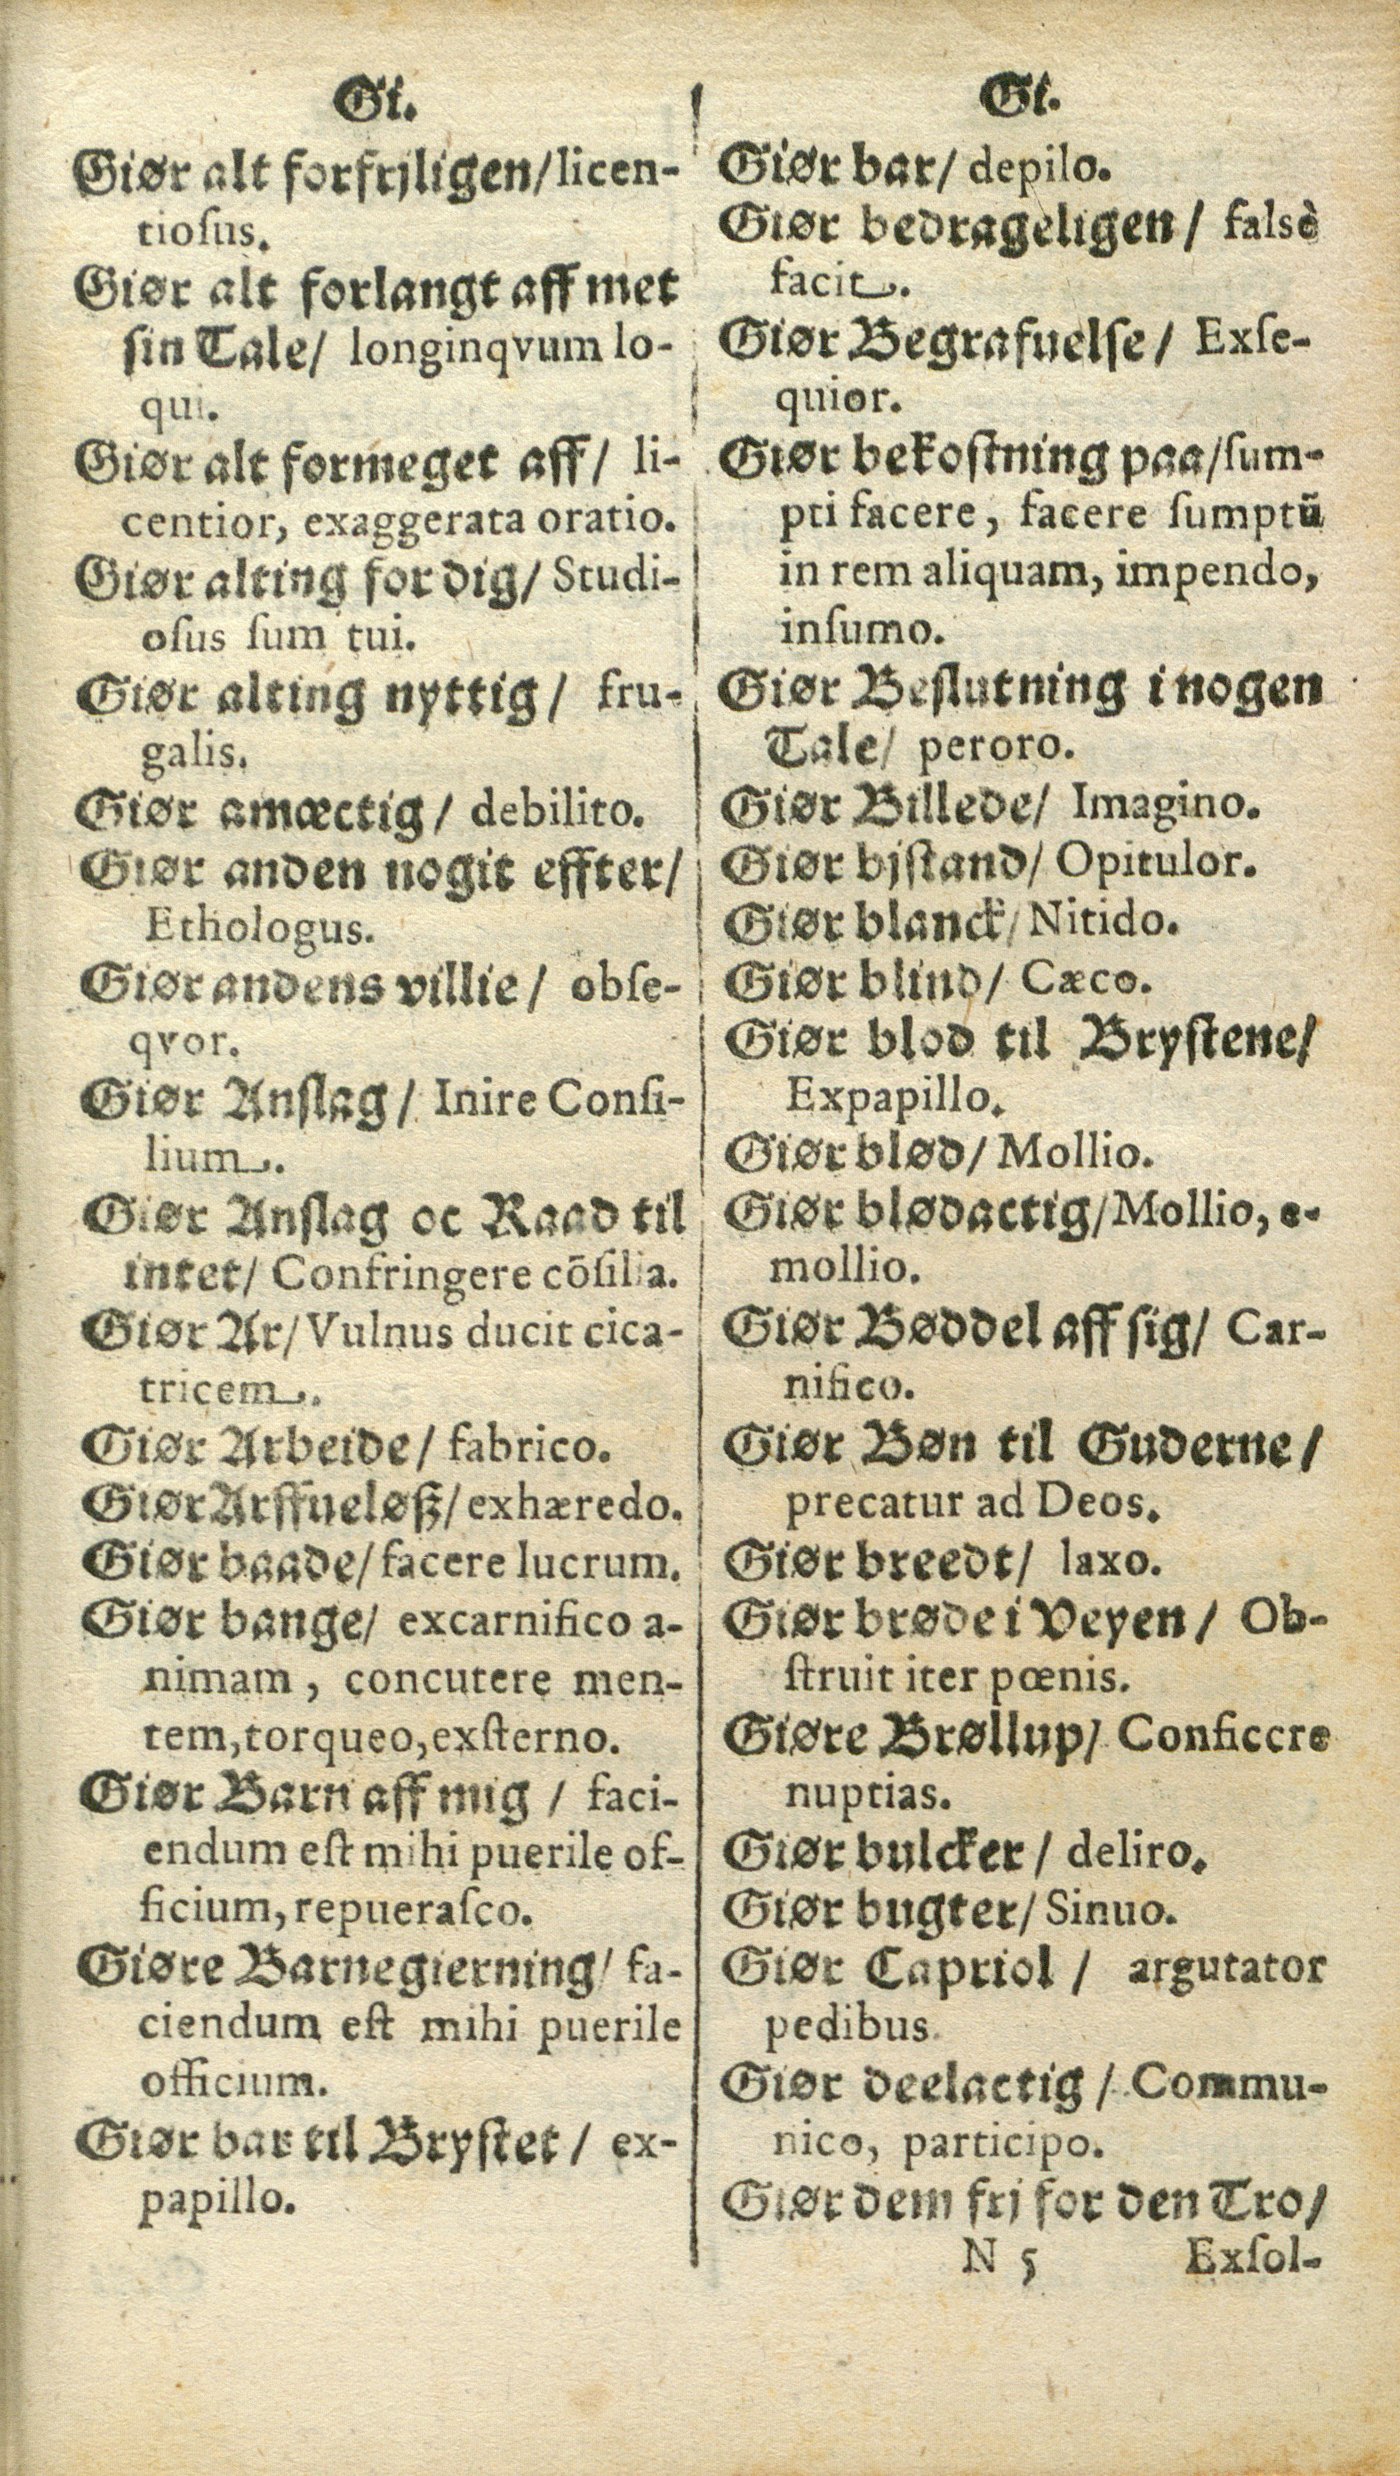 Gi.
Giør alt forfrjligen/licen-
tioſus.
Giør alt forlangt aff met
ſin Tale/ longinqvum lo-
qui.
Giør alt formeget aff/ li-
centior, exaggerata oratio.
Giør alting for dig/ Studi-
oſus ſum tui.
Giør alting nyttig/ fru-
galis.
Giør amæctig/ debilito.
Giør anden nogit effter/
Ethologus.
Giør andens villie/ obſe-
qvor.
Giør Anſlag/ Inire Conſi-
lium.
Giør Anſlag oc Raad til
intet/ Confringere cōſilia.
Giør Ar/Vulnus ducit cica-
tricem.
Giør Arbeide/ fabrico.
Giør Arffueløß/exhæredo.
Giør baade/facere lucrum.
Giør bange/ excarnifico a-
nimam, concutere men-
tem,torqueo,exſterno.
Giør Barn aff mig / faci-
endum eſt mihi puerile of-
ficium,repueraſco.
Giøre Barnegierning/ fa-
ciendum eſt mihi puerile
officium.
Giør bar til Bryſtet/ ex-
papillo.
Gi.
Giør bar/ depilo.
Giør bedrageligen/ falsè
facit.
Giør Begrafuelſe/ Exſe-
quior.
Giør bekoſtning paa/ſum-
pti facere, facere ſumptū
in rem aliquam, impendo,
inſumo.
Giør Beſlutning i nogen
Tale/ peroro.
Giør Billede/ Imagino.
Giør bjſtand/ Opitulor.
Giør blanck/Nitido.
Giør blind/ Cæco.
Giør blod til Bryſtene/
Expapillo.
Giør blød/ Mollio.
Giør blødactig/Mollio, e-
mollio.
Giør Bøddel aff ſig/ Car-
nifico.
Giør Bøn til Guderne/
precatur ad Deos.
Giør breedt/ laxo.
Giør brøde i Veyen/ Ob-
ſtruit iter pœnis.
Giøre Brøllup/ Conficere
nuptias.
Giør bulcker/ deliro.
Giør bugter/ Sinuo.
Giør Capriol / argutator
pedibus.
Giør deelactig/ Commu-
nico, participo.
Giør dem frj for den Tro/
N 5 Exſol-